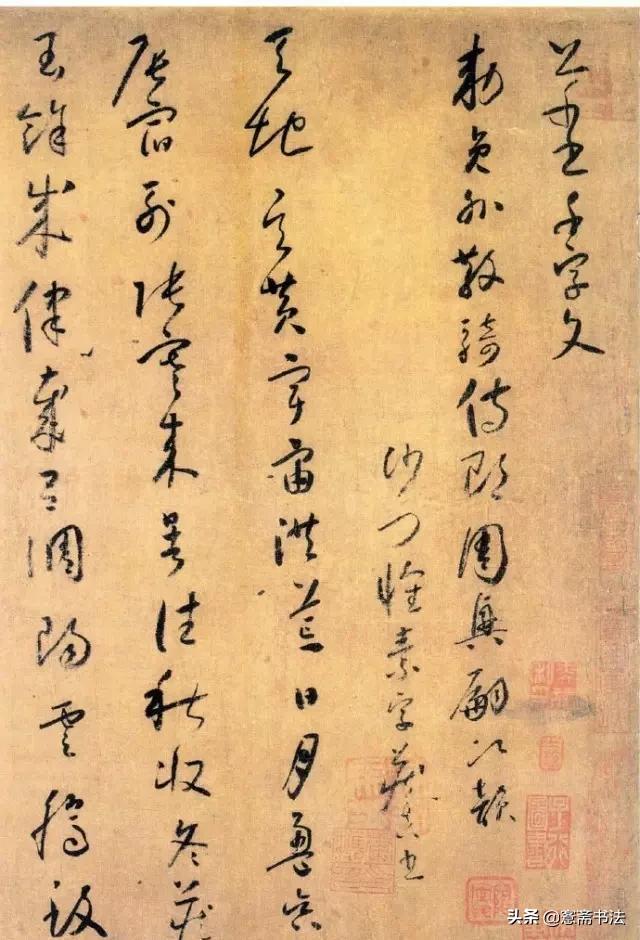 草書千字文
勅員外散騎侍郎周興嗣次韻
沙門懷素字藏真書
天地玄黄宇宙洪荒日月盈昃
辰宿列張寒来暑往秋收冬藏
閏餘成律歲吕調陽雲騰致
头条 @愙斋书法